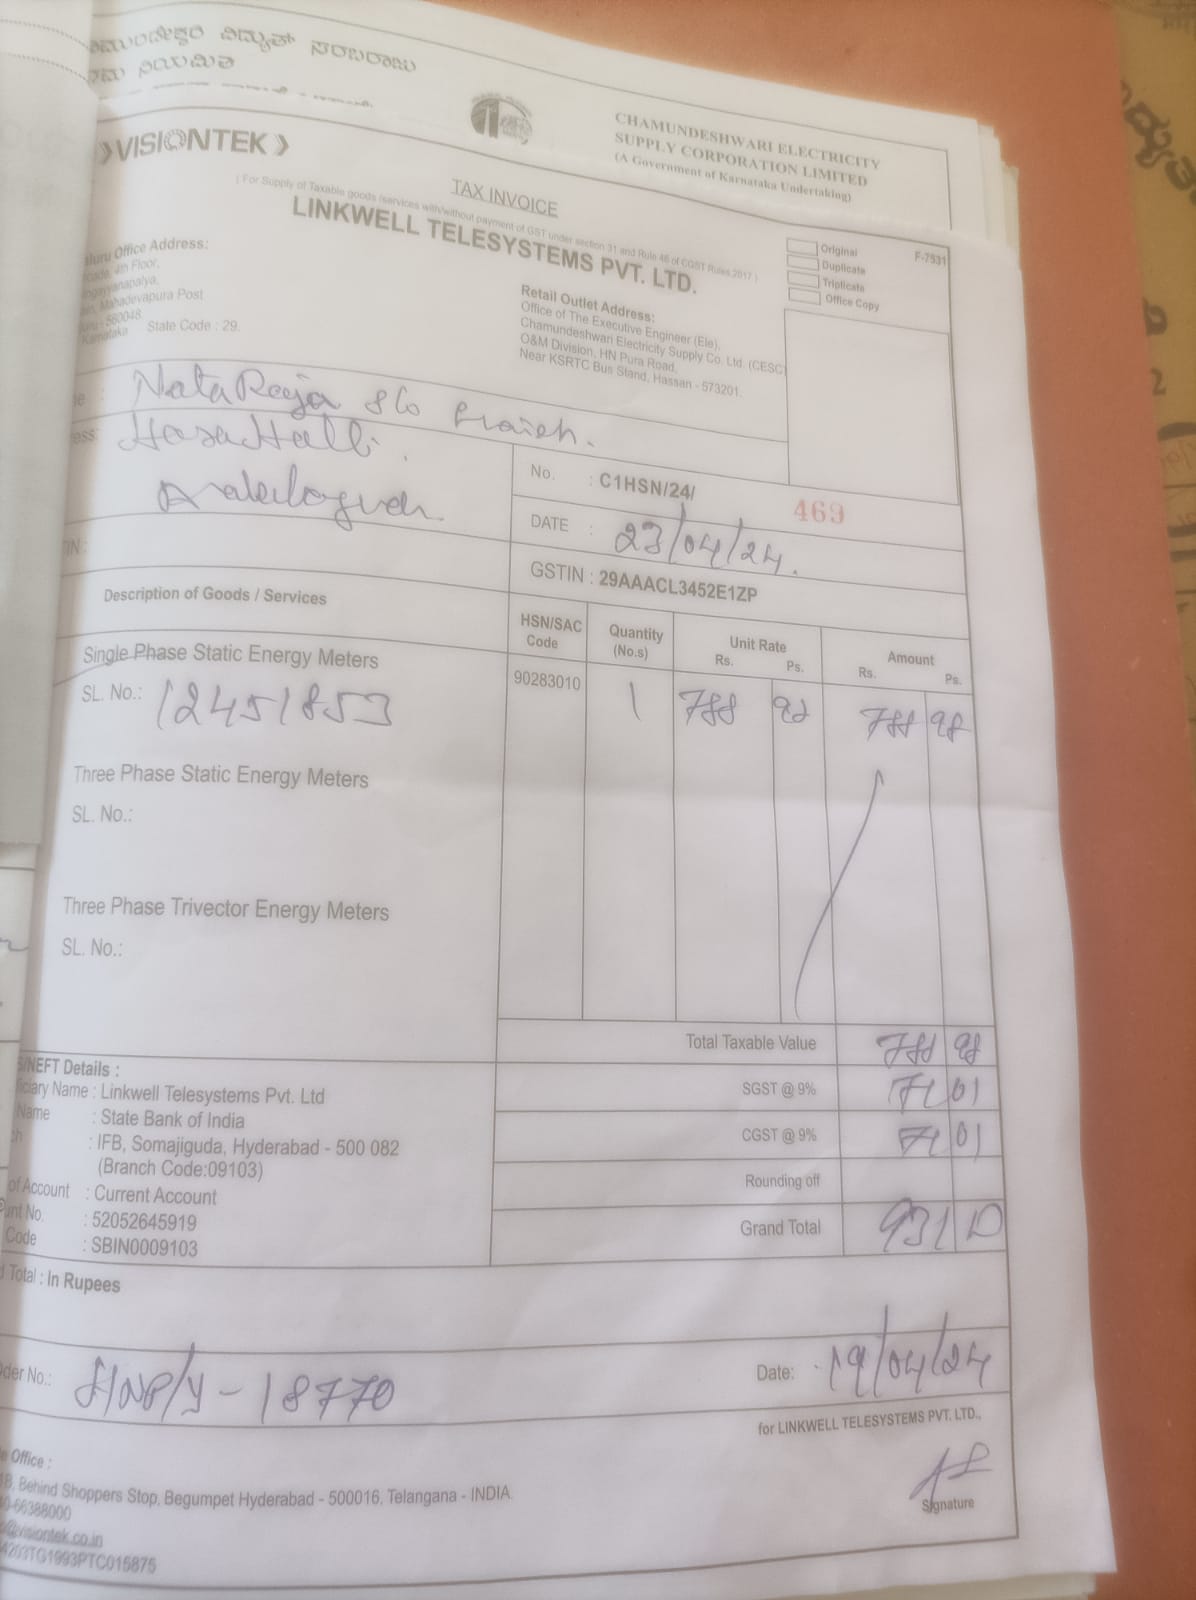 ವಿದ್ಯುತ್ ಸರಬರಾಜು
ನಿಯಮಿತ
VISIONTEK
CHAMUNDESHWARI ELECTRICITY
SUPPLY CORPORATION LIMITED
(A Government of Karnataka Undertaking)
TAX INVOICE
( For Supply of Taxable goods /services with/without payment of GST under section 31 and Rule 46 of CGST Rules,2017 )
LINKWELL TELESYSTEMS PVT. LTD.
Original
Duplicate
Triplicate
Office Copy
F-7531
Office Address:
4th Floor,
Mahadevapura Post
560048
Karnataka State Code : 29.
Retail Outlet Address:
Office of The Executive Engineer (Ele),
Chamundeshwari Electricity Supply Co. Ltd. (CESC)
O&M Division, HN Pura Road,
Near KSRTC Bus Stand, Hassan - 573201.
NataRaja S/o
HosaHalli.
No. : C1HSN/24/ 469
DATE : 23/04/24.
GSTIN : 29AAACL3452E1ZP
Description of Goods / Services
HSN/SAC Code
Quantity (No.s)
Unit Rate Rs. Ps.
Amount Rs. Ps.
Single Phase Static Energy Meters
SL. No.: 12451853
90283010 1 788 98 788 98
Three Phase Static Energy Meters
SL. No.:
Three Phase Trivector Energy Meters
SL. No.:
Total Taxable Value 788 98
SGST @ 9% 71 01
CGST @ 9% 71 01
Rounding off
Grand Total 931 10
/NEFT Details :
Name : Linkwell Telesystems Pvt. Ltd
Name : State Bank of India
: IFB, Somajiguda, Hyderabad - 500 082
(Branch Code:09103)
of Account : Current Account
No. : 52052645919
Code : SBIN0009103
Total : In Rupees
No.: HNP/Y-18770
Date: 19/04/24
for LINKWELL TELESYSTEMS PVT. LTD.,
Signature
Office :
Behind Shoppers Stop, Begumpet Hyderabad - 500016, Telangana - INDIA.
66388000
@visiontek.co.in
TG1993PTC015875